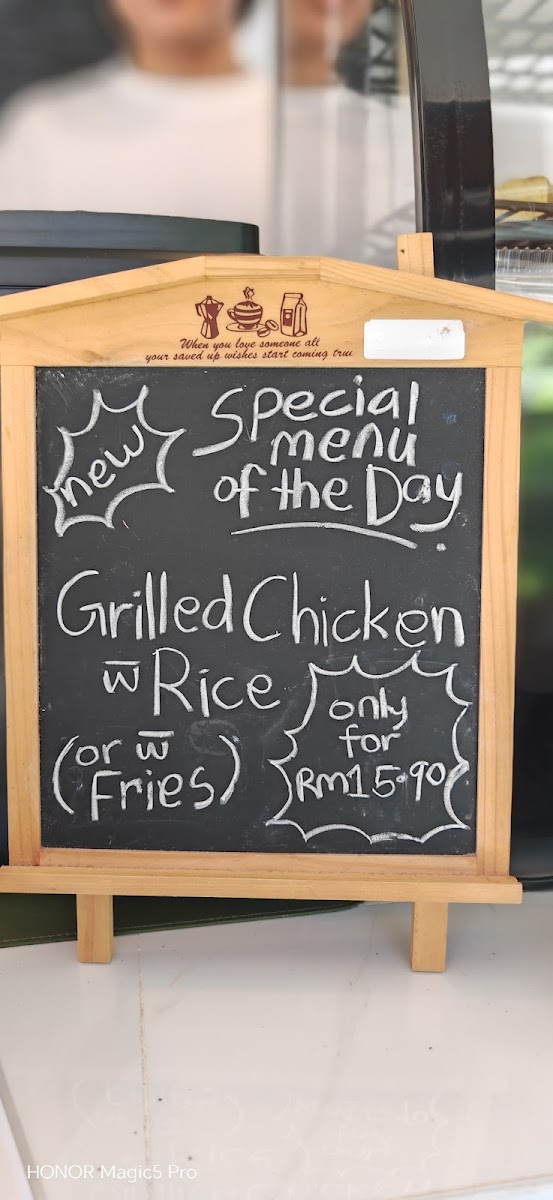 When you love someone all
your saved up wishes start coming true
new
Special
menu
of the Day
Grilled Chicken
w̅ Rice
(or w̅
Fries)
only
for
Rm15.90
HONOR Magic5 Pro